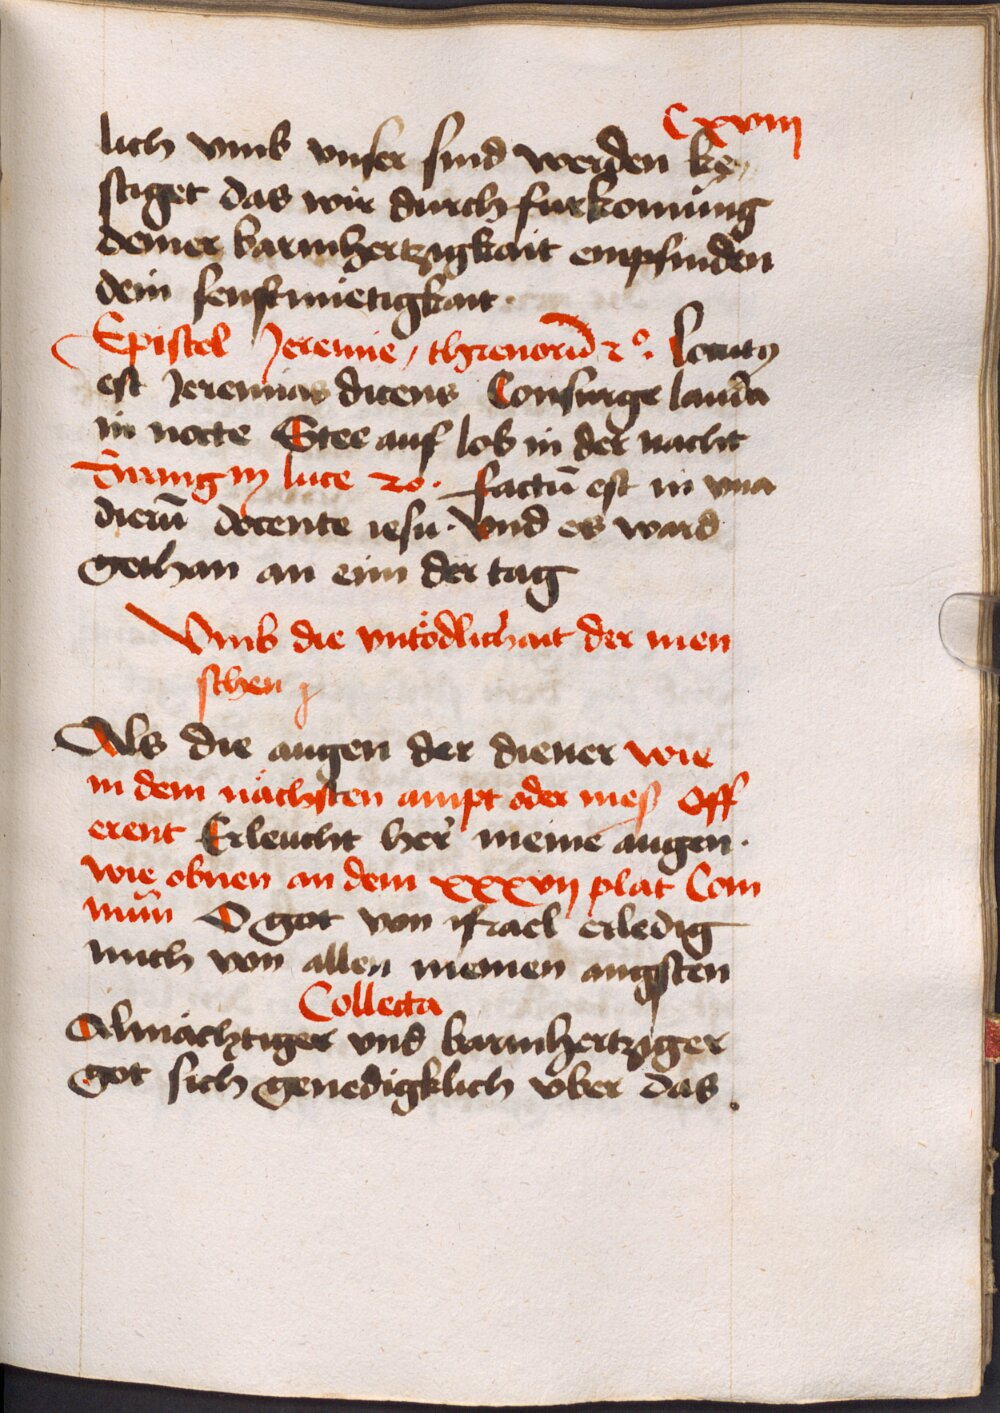 Cxviij
lich vmb vnser sind werden ke¬
stiget das wir durch furkomung
deiner barmhertzigkait empfinden
dein senftmietigkait.
Epistel Jeremie / threnorū 2°. Locutꝯ
est Jeremias dicens Consurge lauda
in nocte Stee auf lob in der nacht
luce 20. factū est in vna
dierū docente iesu. Vnd es ward
gethan an eim der tag
Vmb die vntödlichait der men
schen
Als die augen der diener wie
in dem nächsten ampt oder mess Off
erent Erleucht her meine augen.
wie obnen an dem xxxvij plat Com
mun O got von israel erledig
mich von allen meinen angsten
Collecta
Almächtiger vnd barmhertziger
got sich genedigklich vber das.